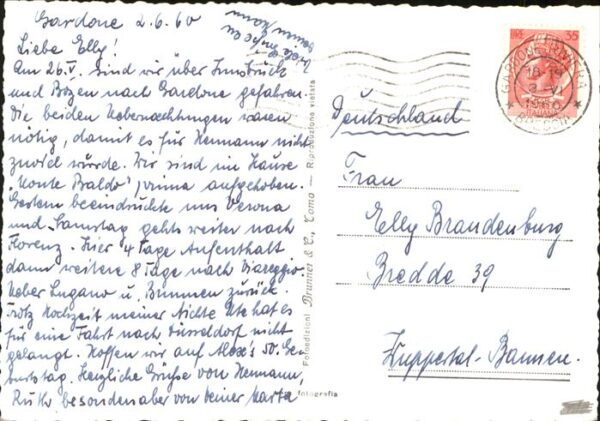 Gardone 2.6.60
Liebe Elly!
Am 26.V. sind wir über Innsbruck
und Bozen nach Gardone gefahren.
Die beiden Uebernachtungen waren
nötig, damit es für Hermann nicht
zuviel würde. Wir sind im Hause
"Monte Baldo", prima aufgehoben.
Gestern beeindruckte uns Verona
und Samstag gehts weiter nach
Florenz. Hier 4 Tage Aufenthalt
dann weitere 8 Tage nach Viareggio.
Ueber Lugano u. Brunnen zurück.
Trotz Hochzeit meiner Nichte Ute hat es
für eine Fahrt nach Düsseldorf nicht
gelangt. Hoffen wir auf Alex's 50. Ge-
burtstag. Herzliche Grüsse von Hermann,
Ruth besonders aber von Deiner Marta
Fotoedizioni Brunner & C., Como — Riproduzione vietata
fotografia
35
GARDONE RIVIERA
18-19
1960
Deutschland
Frau
Elly Brandenburg
Bredde 39
Wuppertal-Barmen.